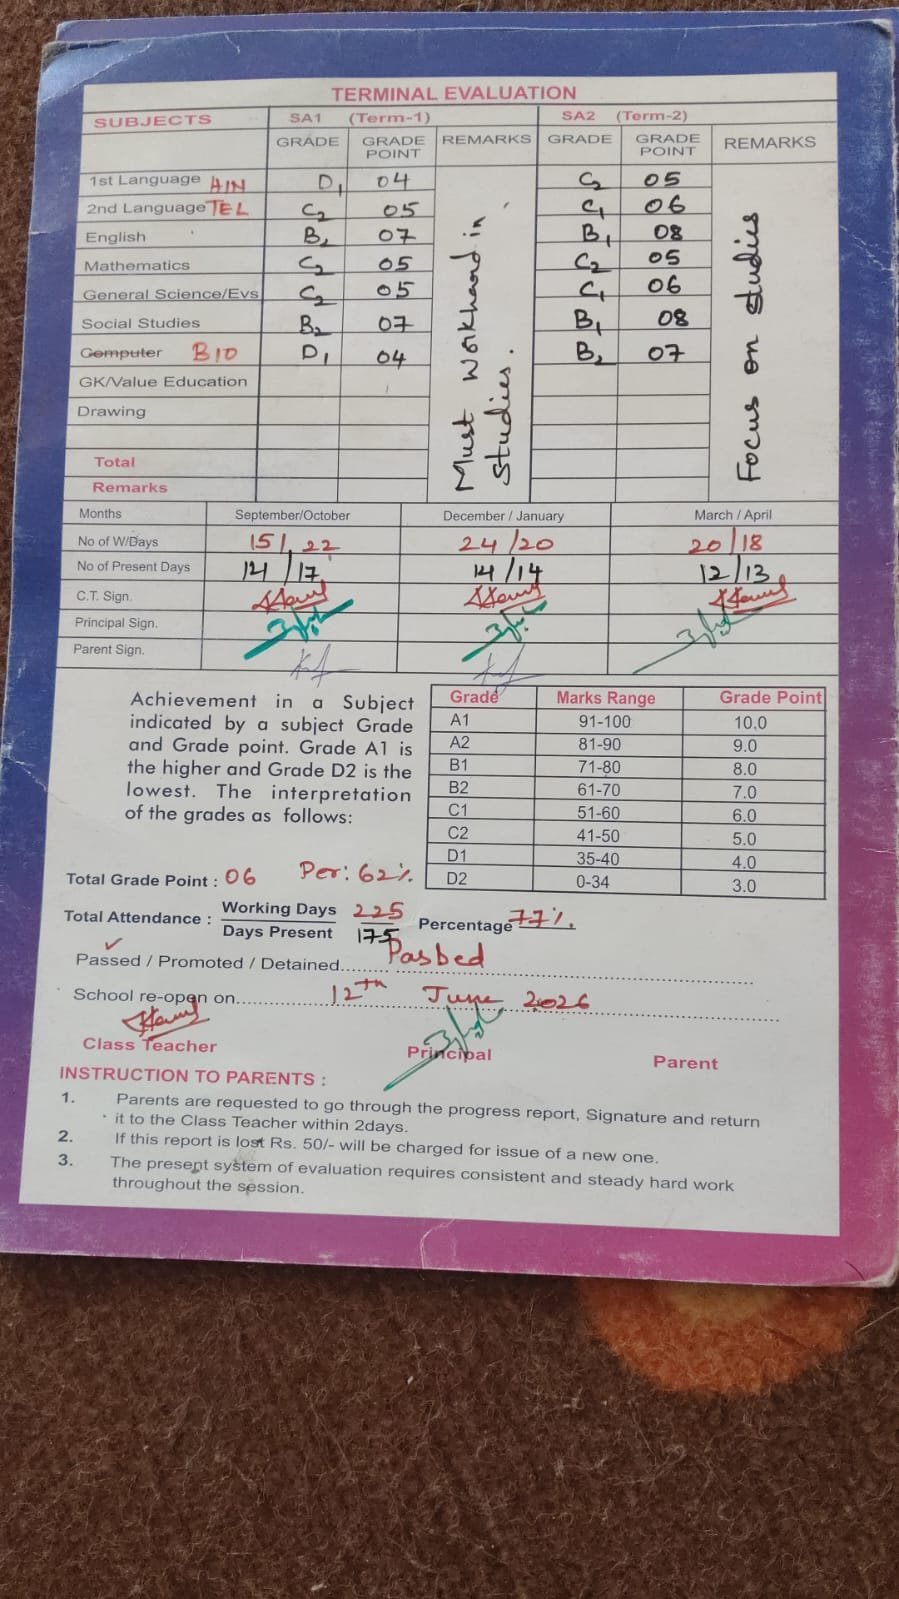 TERMINAL EVALUATION
SUBJECTS SA1 (Term-1) SA2 (Term-2)
GRADE GRADE POINT REMARKS GRADE GRADE POINT REMARKS
1st Language HIN D1 04 C2 05
2nd Language TEL C2 05 C1 06
English B2 07 B1 08
Mathematics C2 05 C2 05
General Science/Evs C2 05 C1 06
Social Studies B2 07 B1 08
Computer BIO D1 04 B2 07
GK/Value Education
Drawing
Total
Remarks
Must workhard in studies.
Focus on studies
Months September/October December / January March / April
No of W/Days 15/22 24/20 20/18
No of Present Days 14/17 14/14 12/13
C.T. Sign.
Principal Sign.
Parent Sign.
Achievement in a Subject
indicated by a subject Grade
and Grade point. Grade A1 is
the higher and Grade D2 is the
lowest. The interpretation
of the grades as follows:
Grade Marks Range Grade Point
A1 91-100 10.0
A2 81-90 9.0
B1 71-80 8.0
B2 61-70 7.0
C1 51-60 6.0
C2 41-50 5.0
D1 35-40 4.0
D2 0-34 3.0
Total Grade Point : 06 Per: 62%.
Total Attendance : Working Days 225 Percentage 77%.
Days Present 175
Passed / Promoted / Detained........ Passed
School re-open on............ 12th June 2026
Class Teacher Principal Parent
INSTRUCTION TO PARENTS :
1. Parents are requested to go through the progress report, Signature and return
it to the Class Teacher within 2days.
2. If this report is lost Rs. 50/- will be charged for issue of a new one.
3. The present system of evaluation requires consistent and steady hard work
throughout the session.